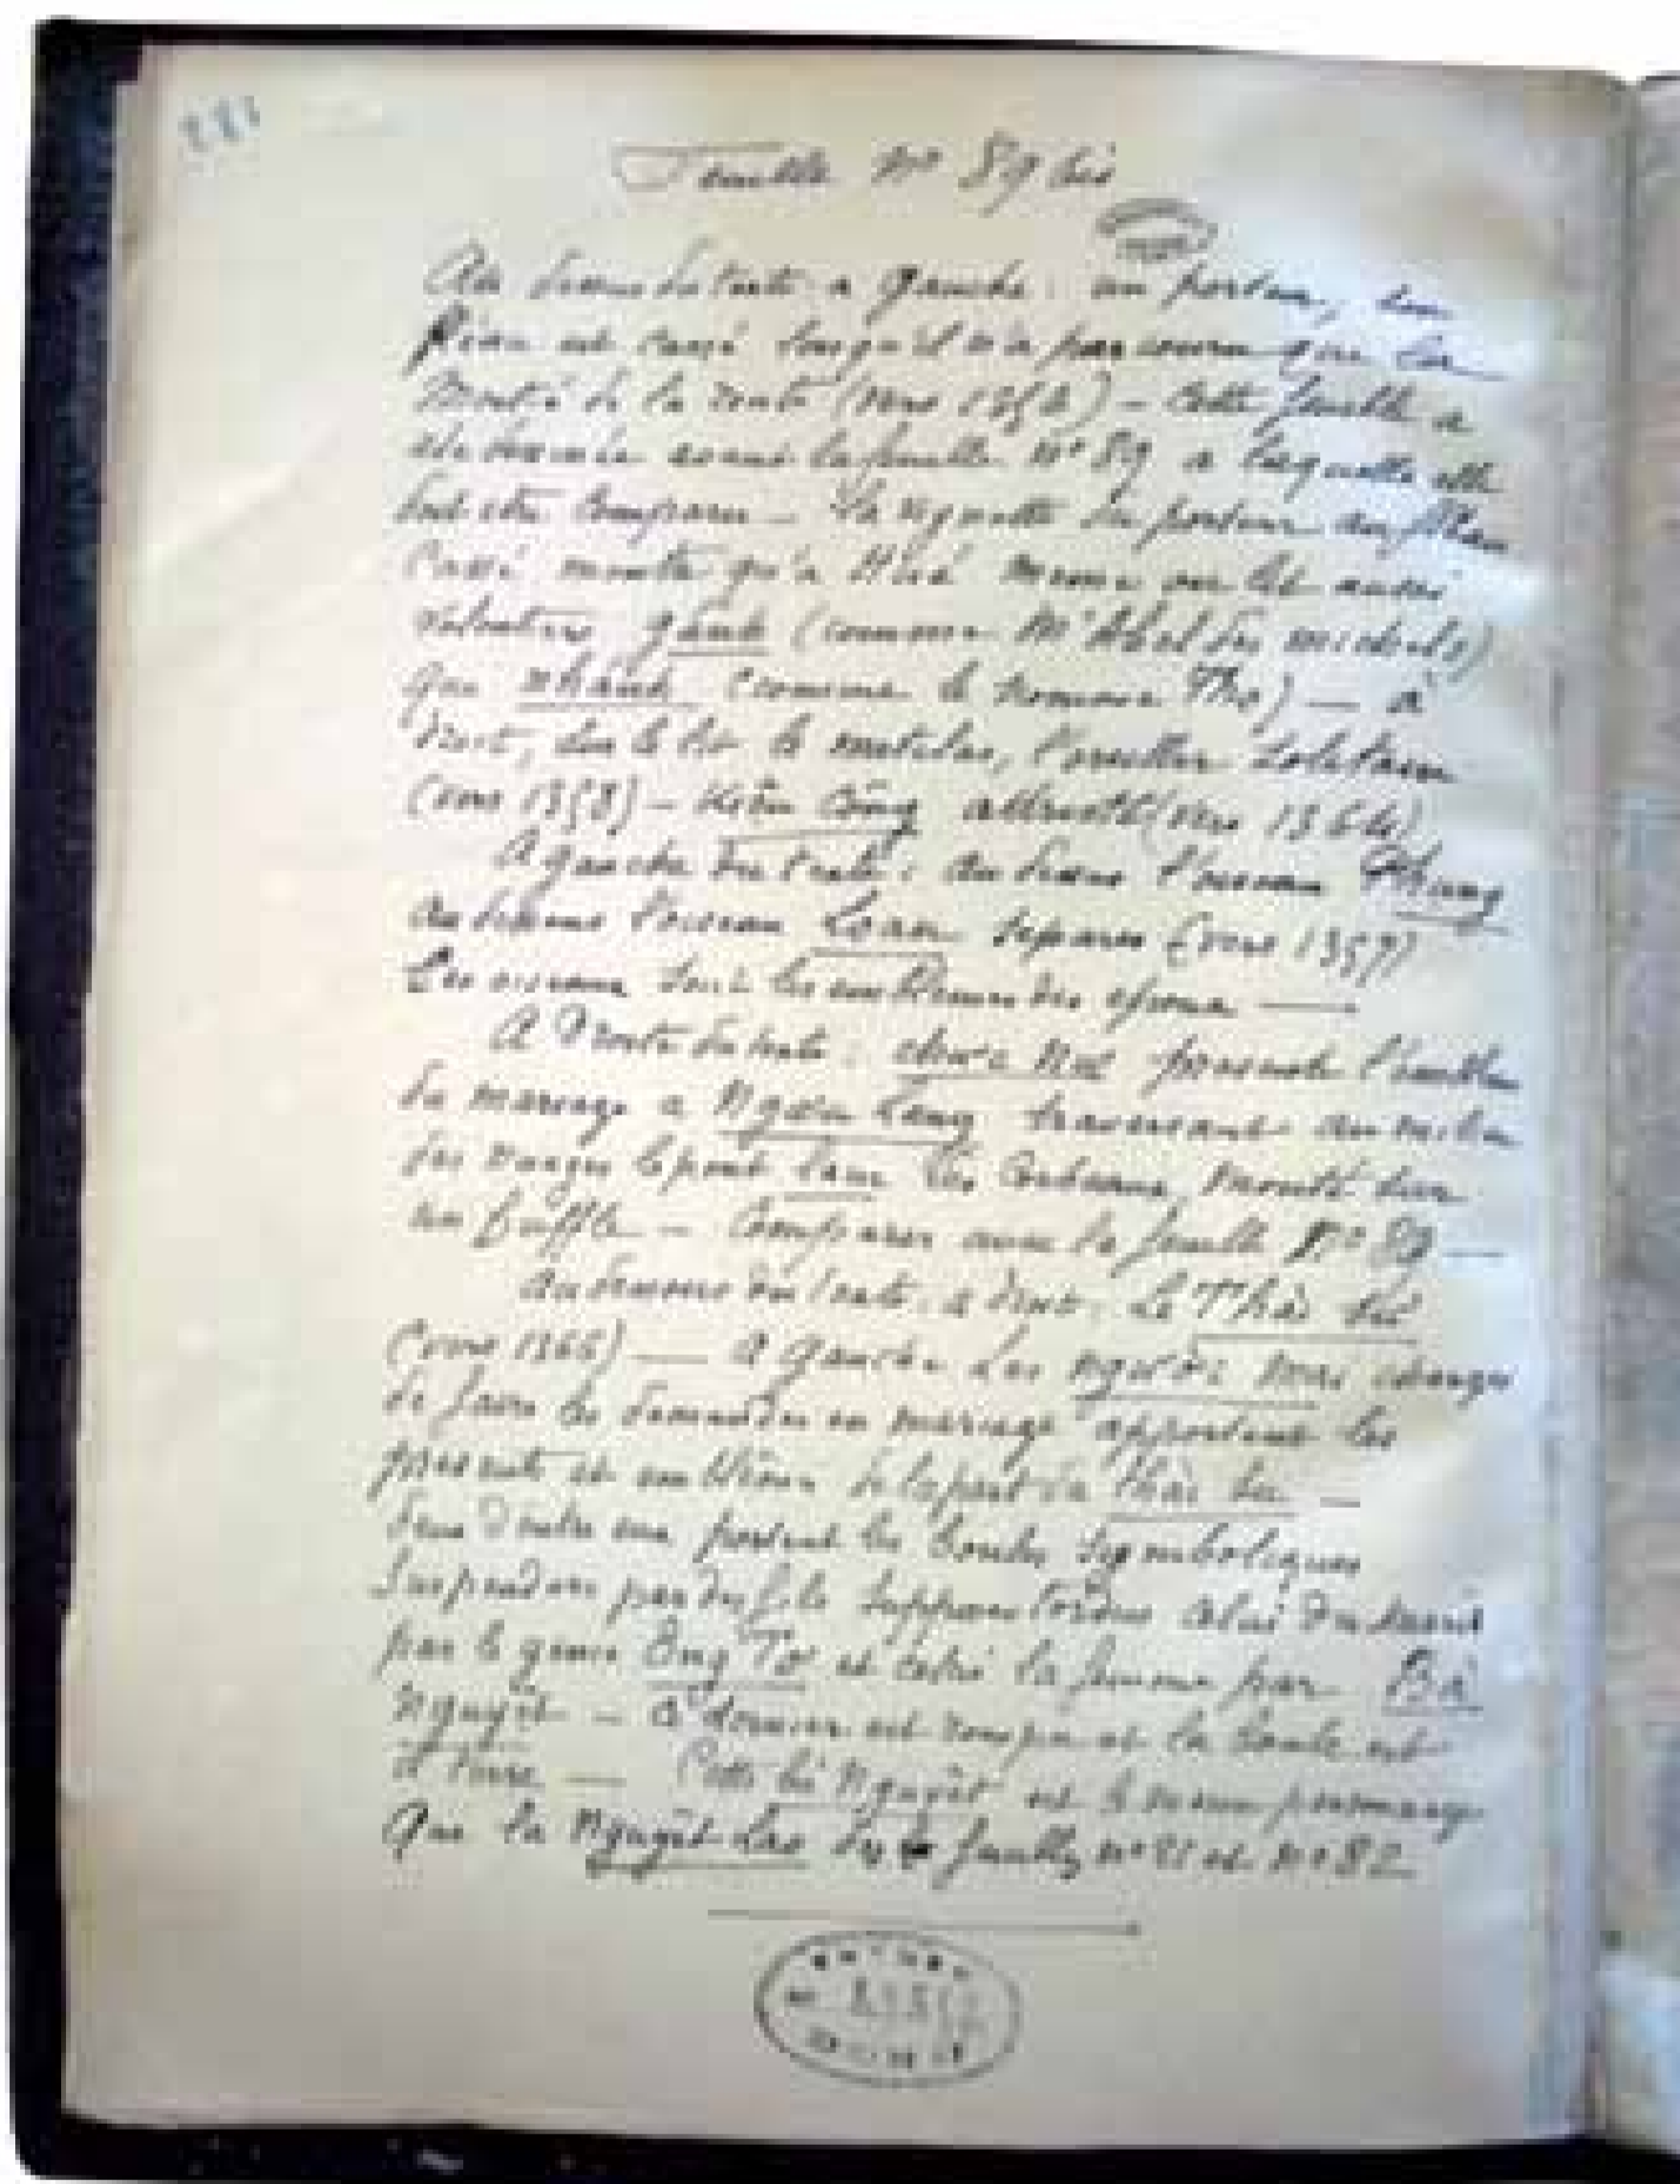 Feuille Nº 89 bis
Au dessus du texte a gauche : un porteur, son
fléau est cassé lorsqu'il n'a parcouru que la
Moitié de la route (vers 1352) — Cette feuille a
été dessinée avant la feuille Nº 89 a laquelle elle
doit etre comparer — La vignette du porteur au fléau
Cassé montre qu'a Hué meme on lit aussi
volontiers gánh (comme Mr Abel des michels)
que nhánh (comme le nommé Thọ) — à
droite, sur le lit le matelas, l'oreiller solitaire
(vers 1358) — Kiêu Công attristé (vers 1364)
A gauche du texte : au dessus l'oiseau Phung
au dessous l'oiseau Loan separés (vers 1357)
Les oiseaux sont les emblemes des epoux —
A Droite du texte : présente l'emblême
du mariage a Ngưu Lang traversant au milieu
des nuages le pont des Corbeaux, monté sur
un buffle — Comparer avec la feuille Nº 89 —
au dessous du texte, a droite, Le Thái
(vers 1366) — A gauche Les người mai chargés
de faire les demandes en mariage apportent les
presents et emblême de la part du thái —
deux d'entre eux portent les boules symboliques
Suspendues par des fils supposés tordus celui du mari
par le génie Ông Tơ et celui la femme par Bà
Nguyệt — Ce dernier est rompu et la boule est
à terre — Cette bà Nguyệt est le meme personnage
que la Nguyệt Lão des feuilles nº 21 et nº 82